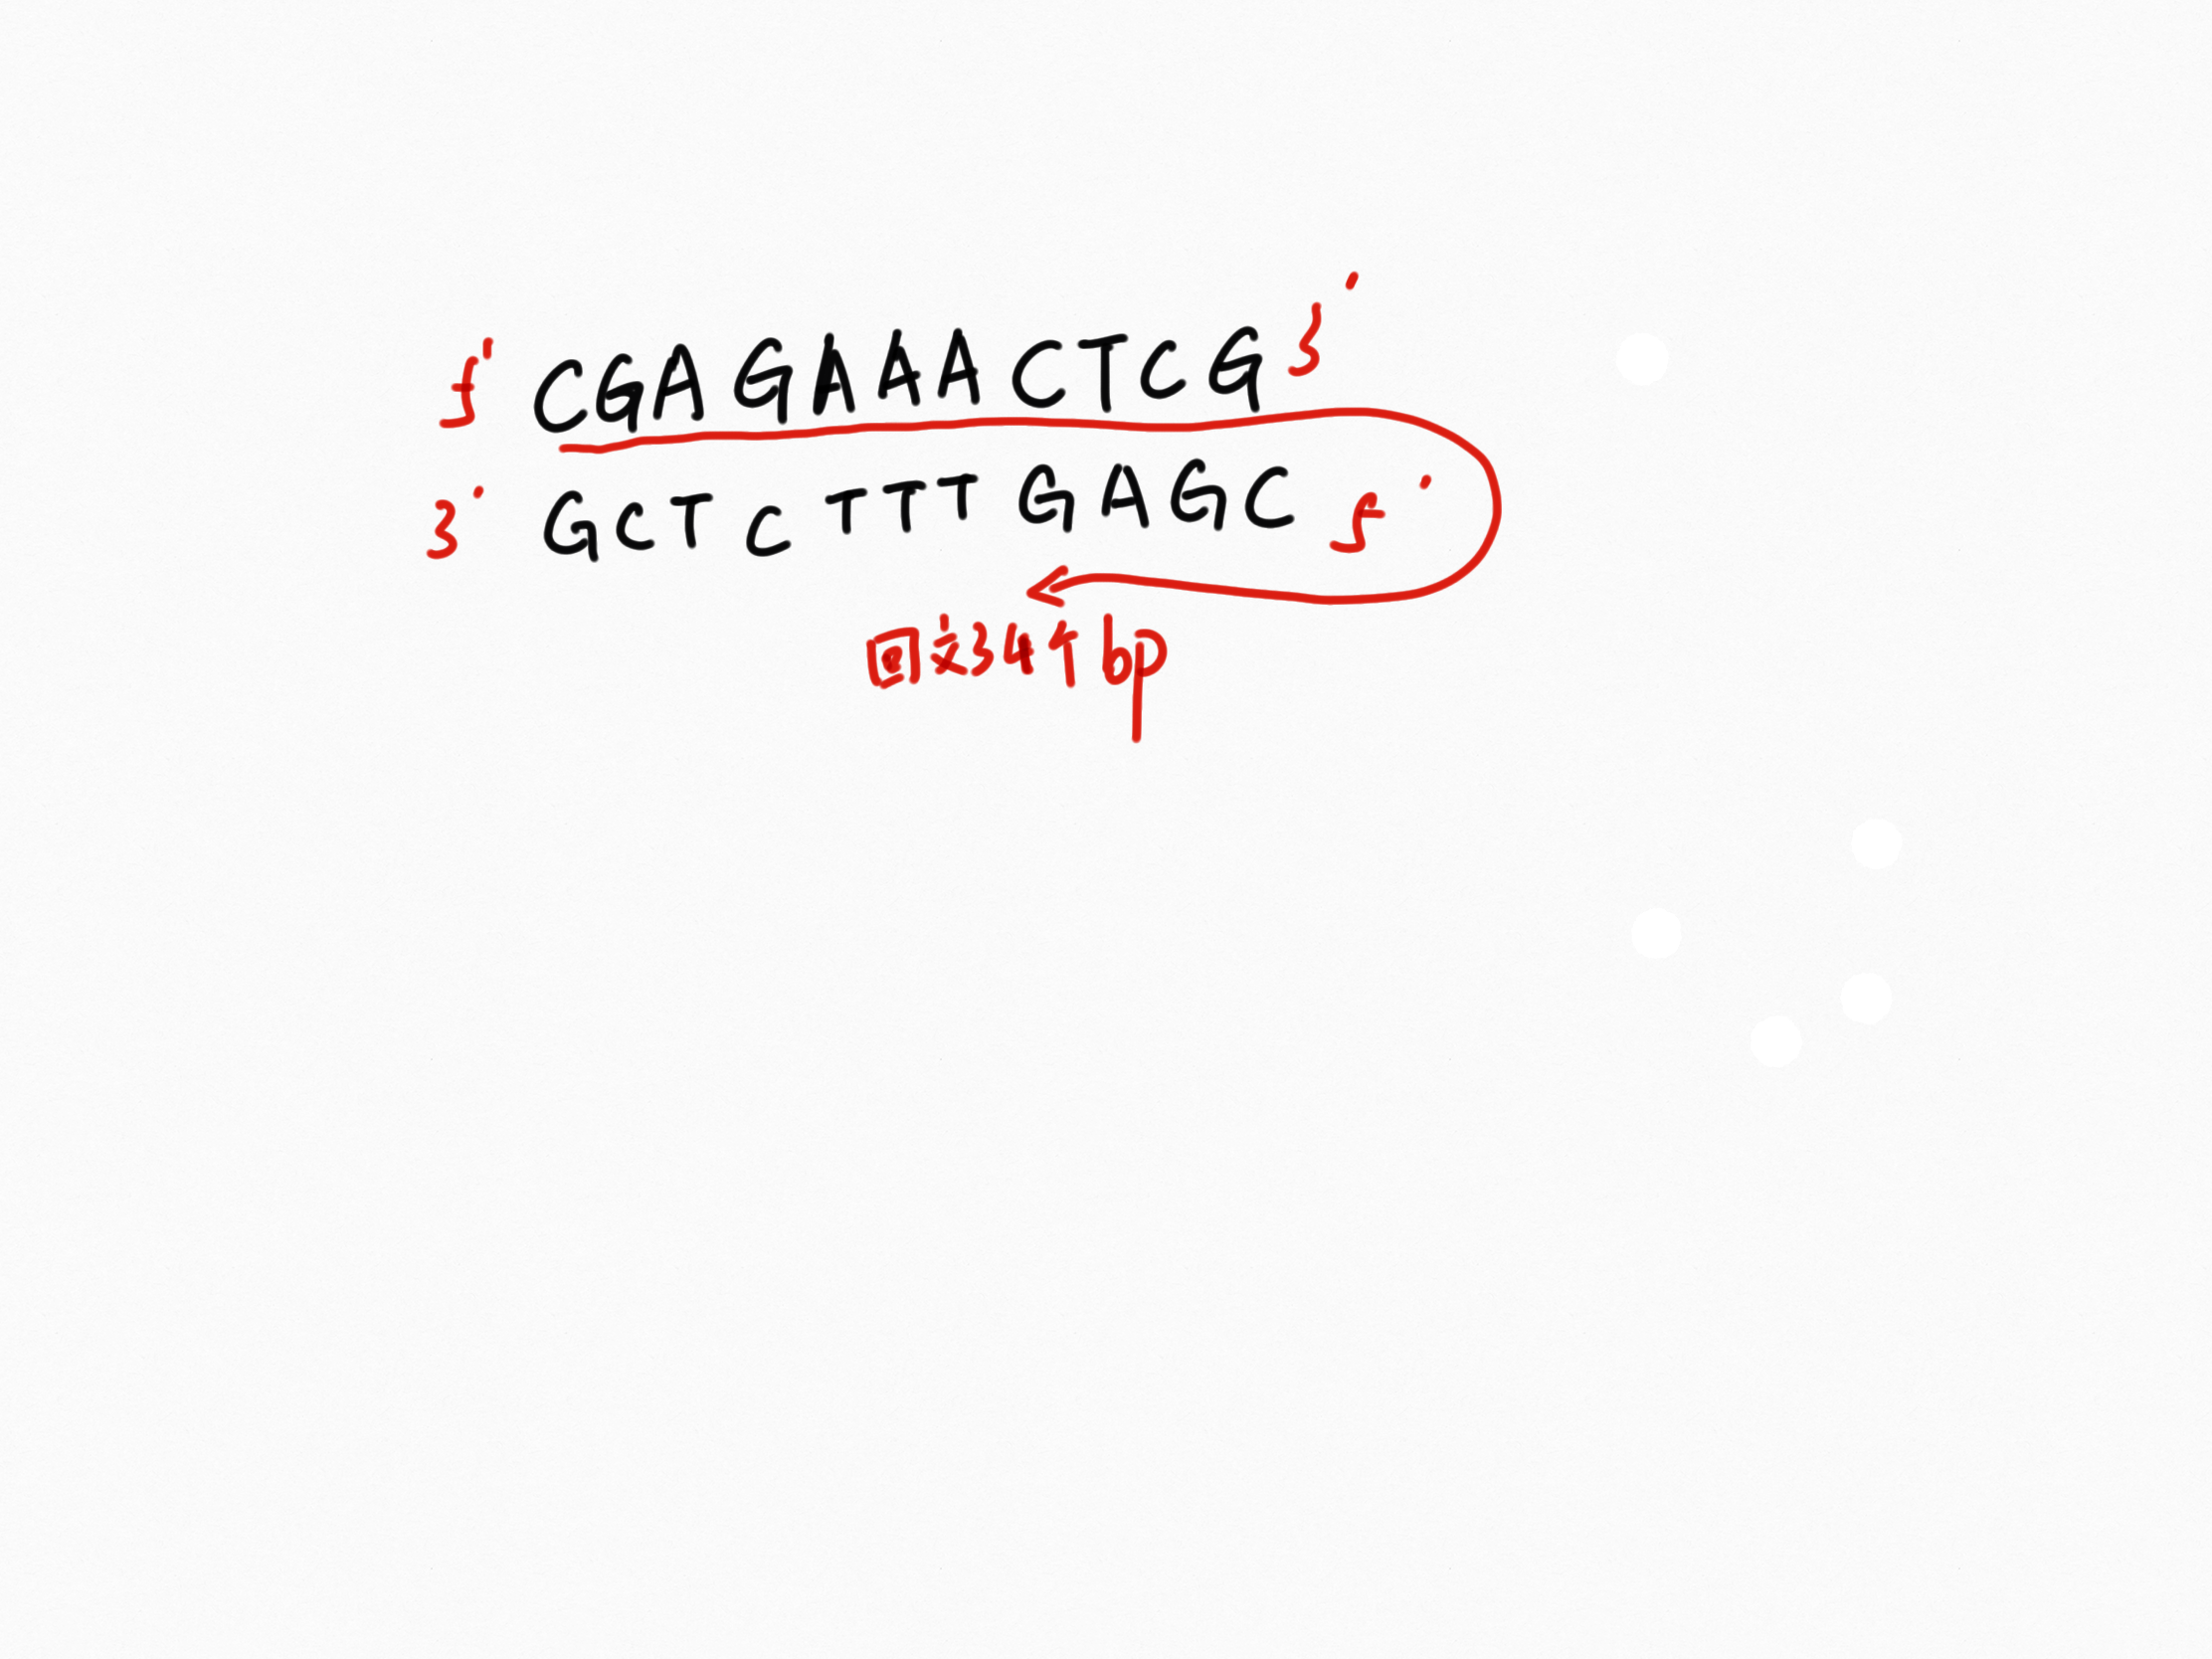 5' CGAGAAACTCG 3'
3' GCTCTTTGAGC 5'
回文34个bp